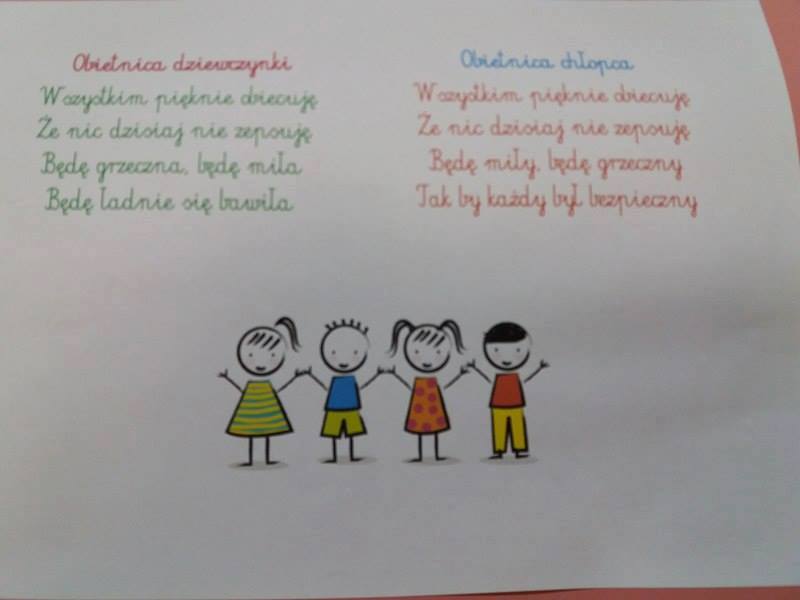 Obietnica dziewczynki
Wszystkim pięknie obiecuję
Że nic dzisiaj nie zepsuję
Będę grzeczna, będę miła
Będę ładnie się bawiła
Obietnica chłopca
Wszystkim pięknie obiecuję
Że nic dzisiaj nie zepsuję
Będę miły, będę grzeczny
Tak by każdy był bezpieczny